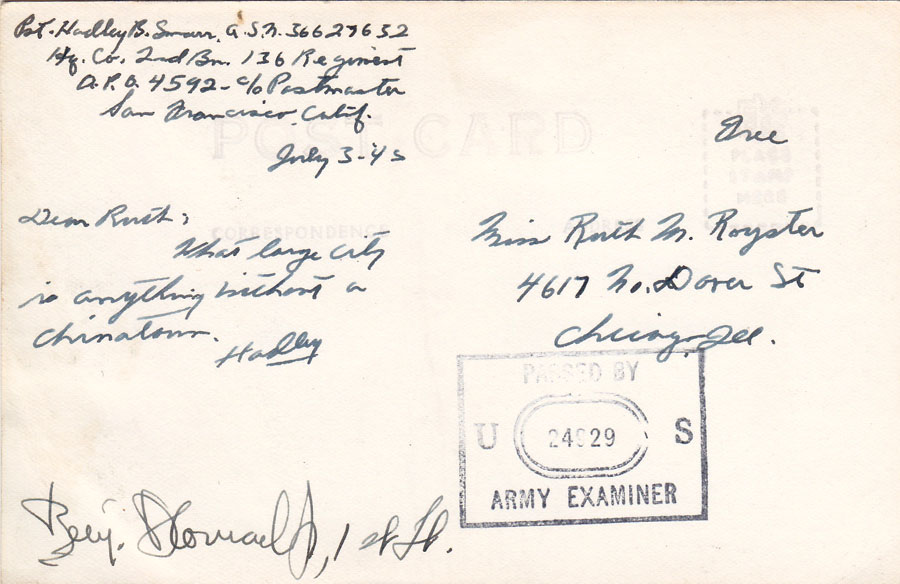 Pvt. Hadley B. Smarr, A.S.N. 36627632
Hq. Co. 2nd Bn. 136 Regiment
A.P.O. 4592 - c/o Postmaster
San Francisco, Calif.
July 3-45
POST CARD
PLACE
STAMP
HERE
Free
CORRESPONDENCE
ADDRESS
Dear Ruth:
What large city
is anything without a
Chinatown.
Hadley
Miss Ruth M. Royster
4617 No. Dover St
Chicago, Ill.
PASSED BY
U S
ARMY EXAMINER
Benj. 1st Lt.